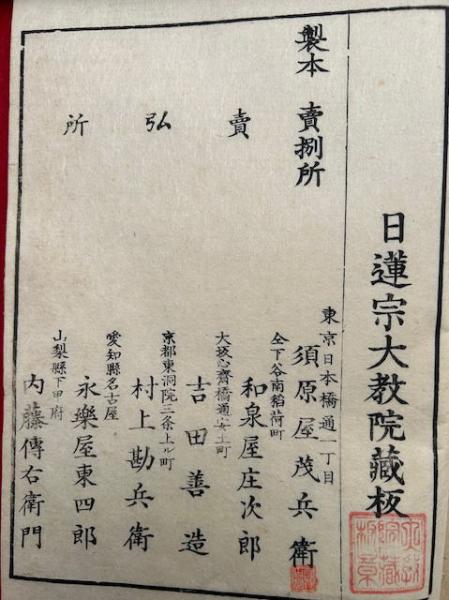 日蓮宗大教院藏板
製本 賣捌所
東京日本橋通一丁目
須原屋茂兵衛
仝下谷南稲荷町
和泉屋庄次郎
賣弘所
大坂心齋橋通安土町
吉田善造
京都東洞院三条上ル町
村上勘兵衛
愛知縣名古屋
永樂屋東四郎
山梨縣下甲府
内藤傳右衛門